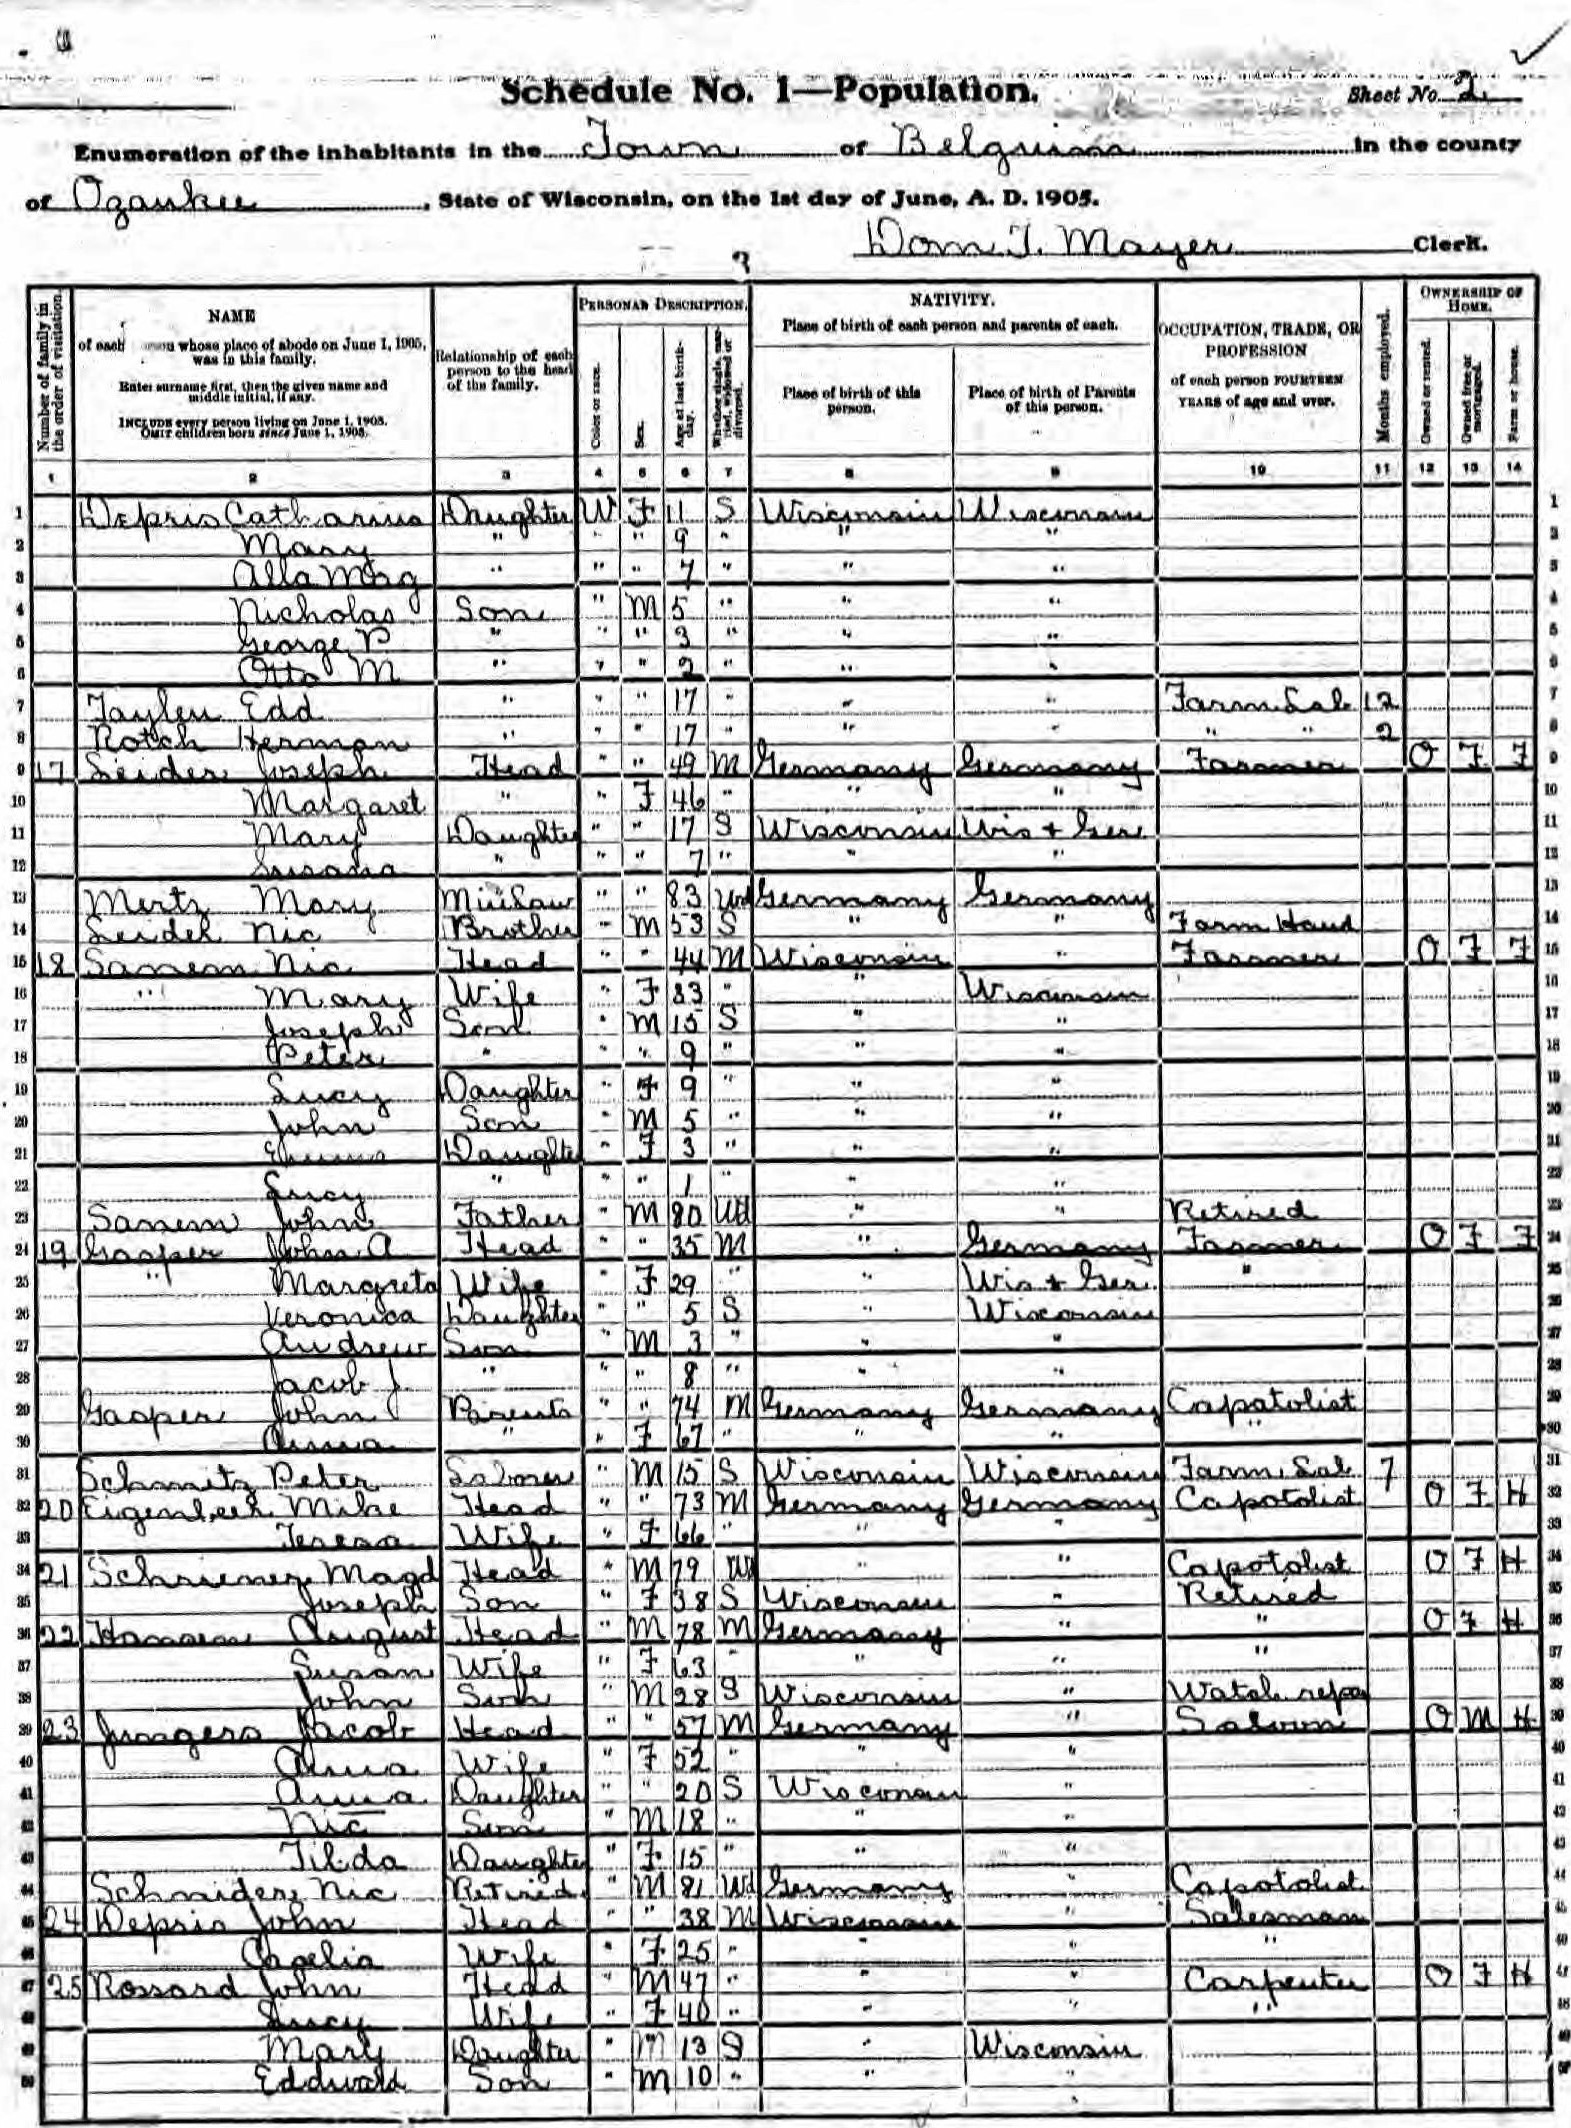 Schedule No. 1—Population.
Sheet No. 2
Enumeration of the inhabitants in the Town of Belguim in the county
of Ozaukee, State of Wisconsin, on the 1st day of June, A. D. 1905.
Dom. T. Mayer Clerk.
Number of family in the order of visitation.
NAME
of each person whose place of abode on June 1, 1905, was in this family.
Enter surname first, then the given name and middle initial, if any.
INCLUDE every person living on June 1, 1905.
OMIT children born since June 1, 1905.
Relationship of each person to the head of the family.
PERSONAL DESCRIPTION.
Color or race.
Sex.
Age at last birthday.
Whether single, married, widowed or divorced.
NATIVITY.
Place of birth of each person and parents of each.
Place of birth of this person.
Place of birth of Parents of this person.
OCCUPATION, TRADE, OR PROFESSION
of each person FOURTEEN YEARS of age and over.
Months employed.
OWNERSHIP OF HOME.
Owned or rented.
Owned free or mortgaged.
Farm or house.
1 2 3 4 5 6 7 8 9 10 11 12 13 14
1 Depris Catharina Daughter W F 11 S Wisconsin Wisconsin 1
2 Mary " " " 9 " " " 2
3 " " " 7 " " " 3
4 Nicholas Son " M 5 " " " 4
5 George P " " " 3 " " " 5
6 Otto M " " " 2 " " " 6
7 Taylen Edd " " " 17 " " " Farm Lab 12 7
8 Rotch Herman " " " 17 " " " " " 2 8
9 17 Leider Joseph Head " " 49 M Germany Germany Farmer O F F 9
10 Margaret " " F 46 " " " 10
11 Mary Daughter " " 17 S Wisconsin Wis + Ger. 11
12 Susana " " " 7 " " " 12
13 Mertz Mary " " 83 Wd Germany Germany 13
14 Leider Nic Brother " M 53 S " " Farm Hand 14
15 18 Sanem Nic Head " " 44 M Wisconsin " Farmer O F F 15
16 " Mary Wife " F 33 " " Wisconsin 16
17 Joseph Son " M 15 S " " 17
18 Peter " " " 9 " " " 18
19 Lucy Daughter " F 9 " " " 19
20 John Son " M 5 " " " 20
21 Daughter " F 3 " " " 21
22 Lucy " " " 1 " " " 22
23 Sanem John Father " M 80 Wd " " Retired 23
24 19 Gasper John A Head " " 35 M " Germany Farmer O F F 24
25 " Margreta Wife " F 29 " " Wis + Ger. " 25
26 Veronica Daughter " " 5 S " Wisconsin 26
27 Andrew Son " M 3 " " " 27
28 Jacob J. " " " 8 " " " 28
29 Gasper John Parents " " 74 M Germany Germany Capatolist 29
30 Anna " " F 67 " " " " 30
31 Schmitz Peter Laborer " M 15 S Wisconsin Wisconsin Farm Lab 7 31
32 20 Mike Head " " 73 M Germany Germany Capotolist O F H 32
33 Teresa Wife " F 66 " " " 33
34 21 Schriener Magd Head " M 79 Wd " " Capotolist O F H 34
35 Joseph Son " F 38 S Wisconsin " Retired 35
36 22 Hansen August Head " M 78 M Germany " " O F H 36
37 Susan Wife " F 63 " " " " 37
38 John Son " M 28 S Wisconsin " Watch repa 38
39 23 Jungers Jacob Head " " 57 M Germany " Saloon O M H 39
40 Anna Wife " F 52 " " " 40
41 Anna Daughter " " 20 S Wisconsin " 41
42 Nic Son " M 18 " " " 42
43 Tilda Daughter " F 15 " " " 43
44 Schnider Nic Retired " M 81 Wd Germany " Capotolist 44
45 24 Depris John Head " " 38 M Wisconsin " Salesman 45
46 Capelia Wife " F 25 " " " " 46
47 25 Rossard John Head " M 47 " " " Carpenter O F H 47
48 Lucy Wife " F 40 " " " " 48
49 Mary Daughter " M 13 S " Wisconsin 49
50 Eddwald Son " M 10 " " " 50